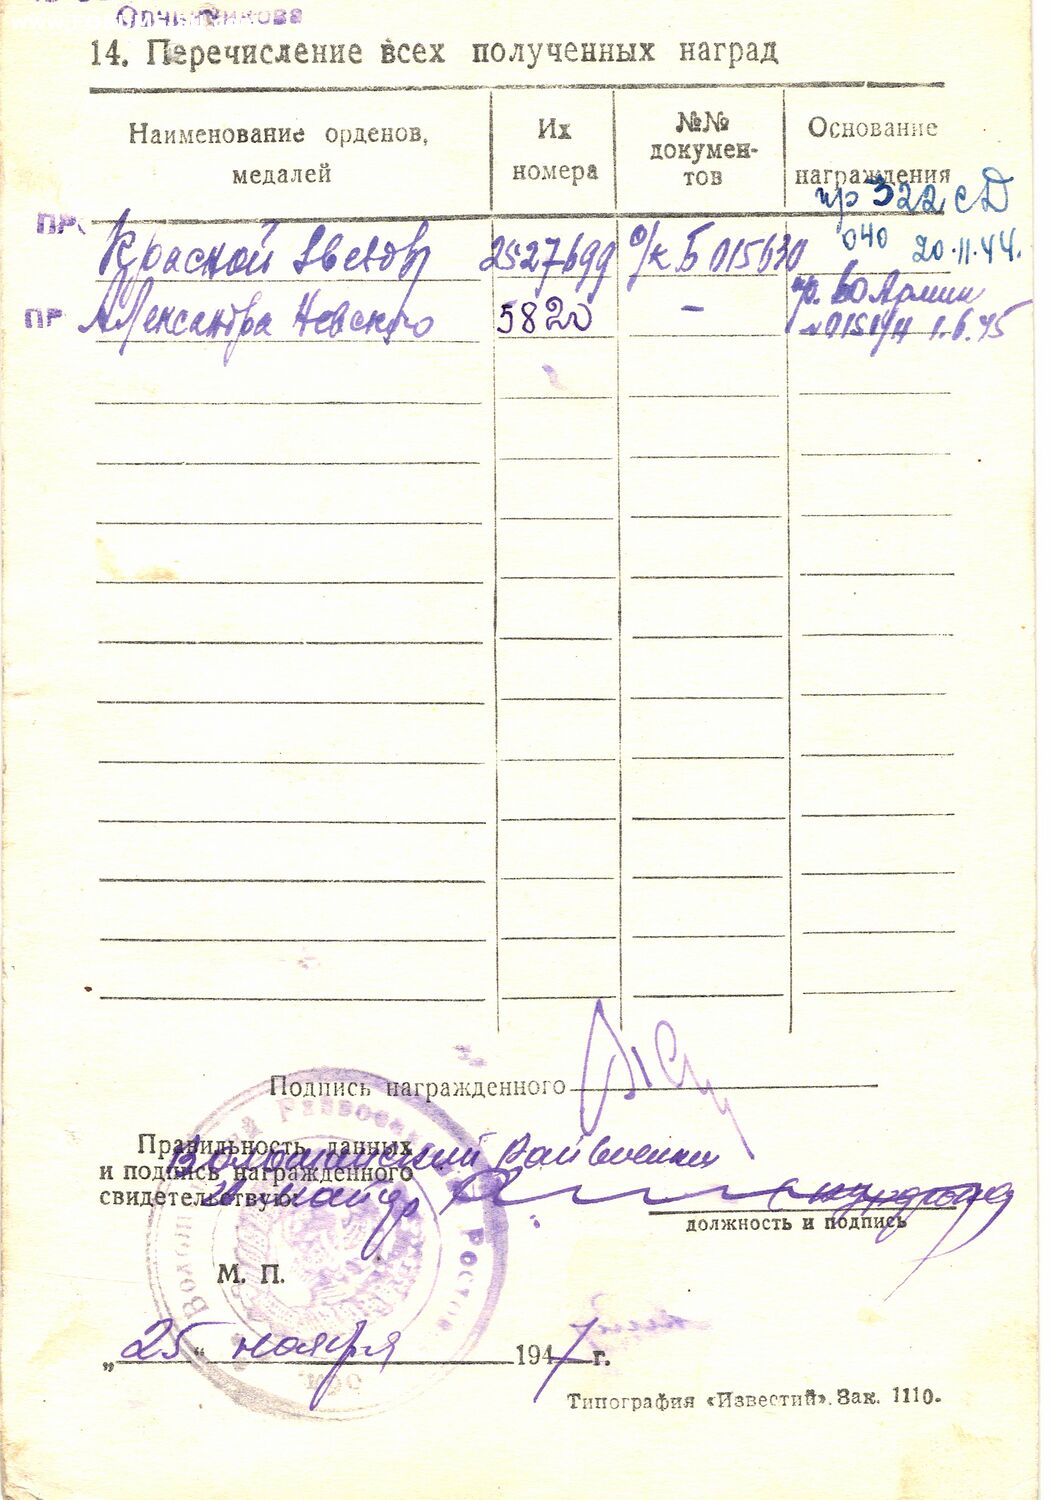 14. Перечисление всех полученных наград
Наименование орденов, медалей
Их номера
№№ докумен-
тов
Основание награждения
пр 322 сД
040 20.11.44.
ПР Красной Звезды 2527699 о/к Б 015630
ПР Александра Невского 5820 –
пр. 60 Армии
1.6.45
Подпись награжденного
Правильность данных
и подпись награжденного
свидетельствую:
Райвоенком
майор
должность и подпись
М. П.
„25“ ноября 1947 г.
Типография «Известий». Зак. 1110.